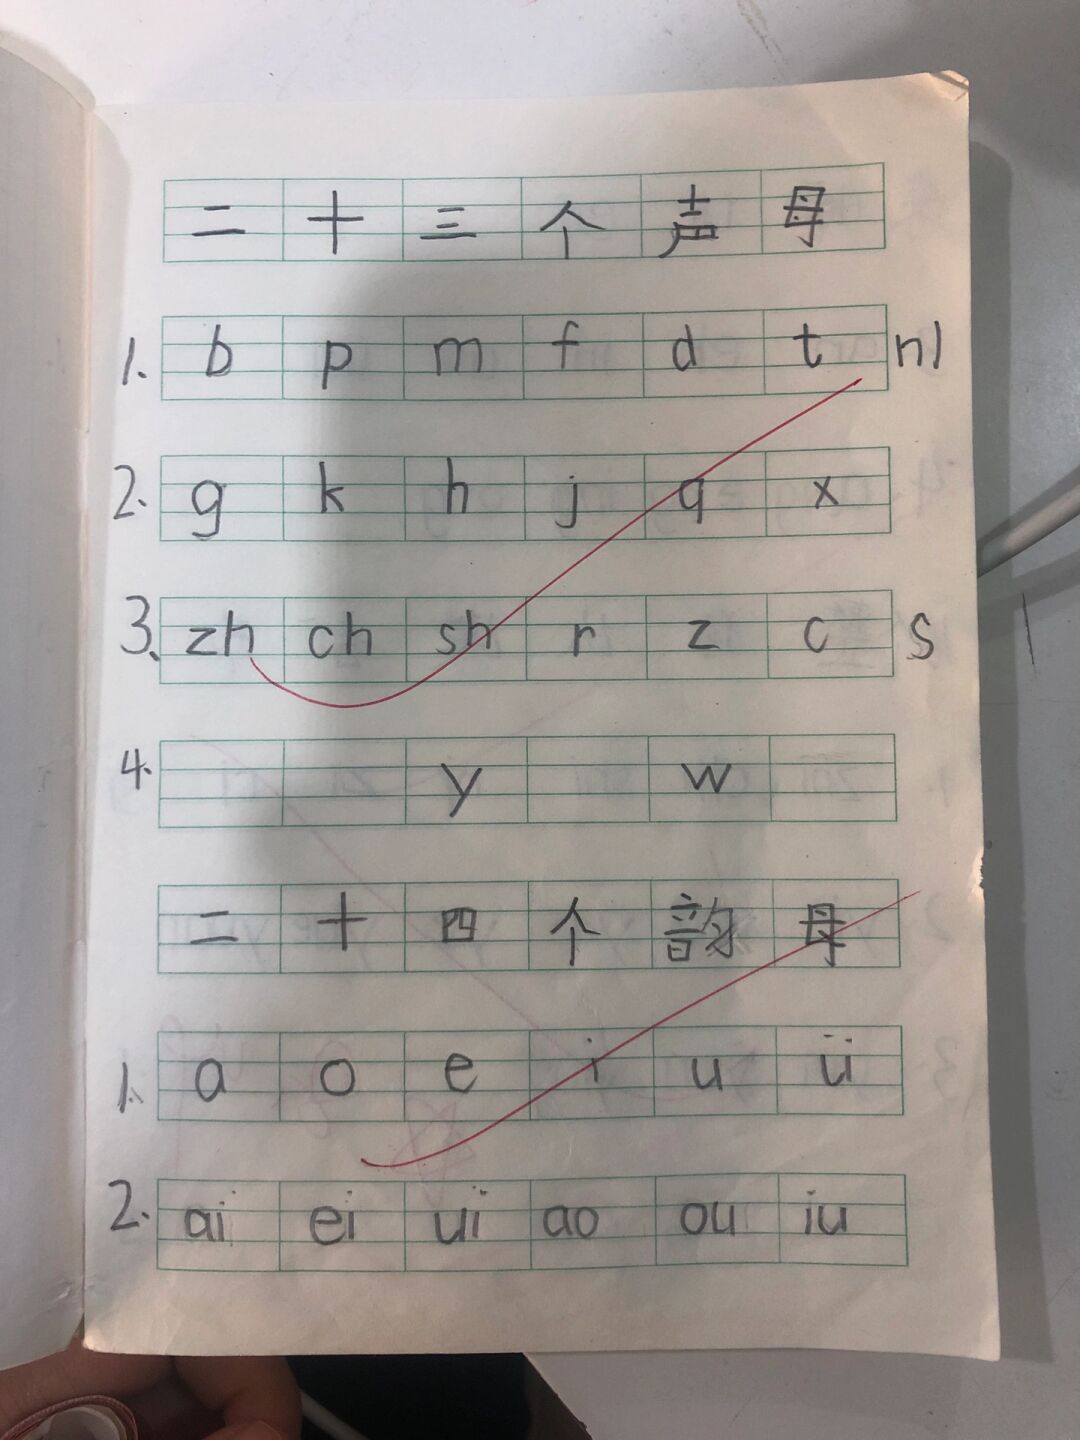 二十三个声母
1. b p m f d t n l
2. g k h j q x
3. zh ch sh r z c s
4. y w
二十四个韵母
1. a o e i u ü
2. ai ei ui ao ou iu